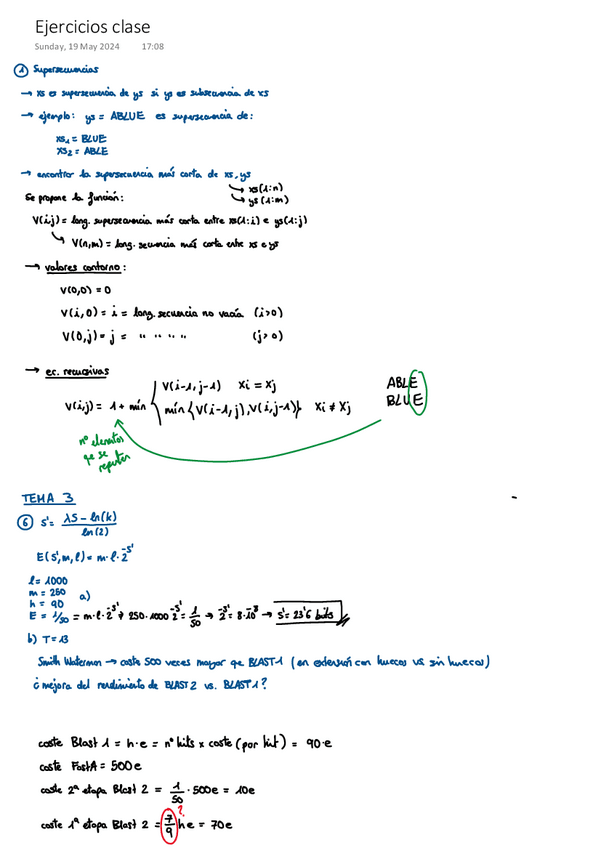 Ejercicios clase
Sunday, 19 May 2024 17:08
① Supersecuencias
→ xs es supersecuencia de ys si ys es subsecuencia de xs
→ ejemplo: ys = ABLUE es supersecuencia de:
xs₁ = BLUE
xs₂ = ABLE
→ encontrar la supersecuencia más corta de xs, ys
↳ xs(1:n)
↳ ys(1:m)
Se propone la función:
V(i,j) = long. supersecuencia más corta entre xs(1:i) e ys(1:j)
↳ V(n,m) = long. secuencia más corta entre xs e ys
→ valores contorno:
V(0,0) = 0
V(i,0) = i = long. secuencia no vacía (i>0)
V(0,j) = j = " " " " (j>0)
→ ec. recursivas
V(i,j) = 1 + mín { V(i-1,j-1) Xi = Xj
mín {V(i-1,j), V(i,j-1)} Xi ≠ Xj
ABLE
BLUE
nº elementos
que se
repiten
TEMA 3
⑥ S' = λS - ln(k) / ln(2)
E(S',m,l) = m·l·2^-S'
l = 1000
m = 250 a)
h = 90
E = 1/50 = m·l·2^-S' → 250·1000·2^-S' = 1/50 → 2^-S' = 8·10^-8 → S' = 23'6 bits
b) T = 13
Smith Waterman → coste 500 veces mayor que BLAST1 (en extensión con huecos vs sin huecos)
¿ mejora del rendimiento de BLAST2 vs. BLAST1?
coste Blast 1 = h·e = nº hits x coste (por hit) = 90·e
coste FastA = 500e
coste 2ª etapa Blast 2 = 1/50 · 500e = 10e
coste 1ª etapa Blast 2 = 7/9 h e = 70e
?